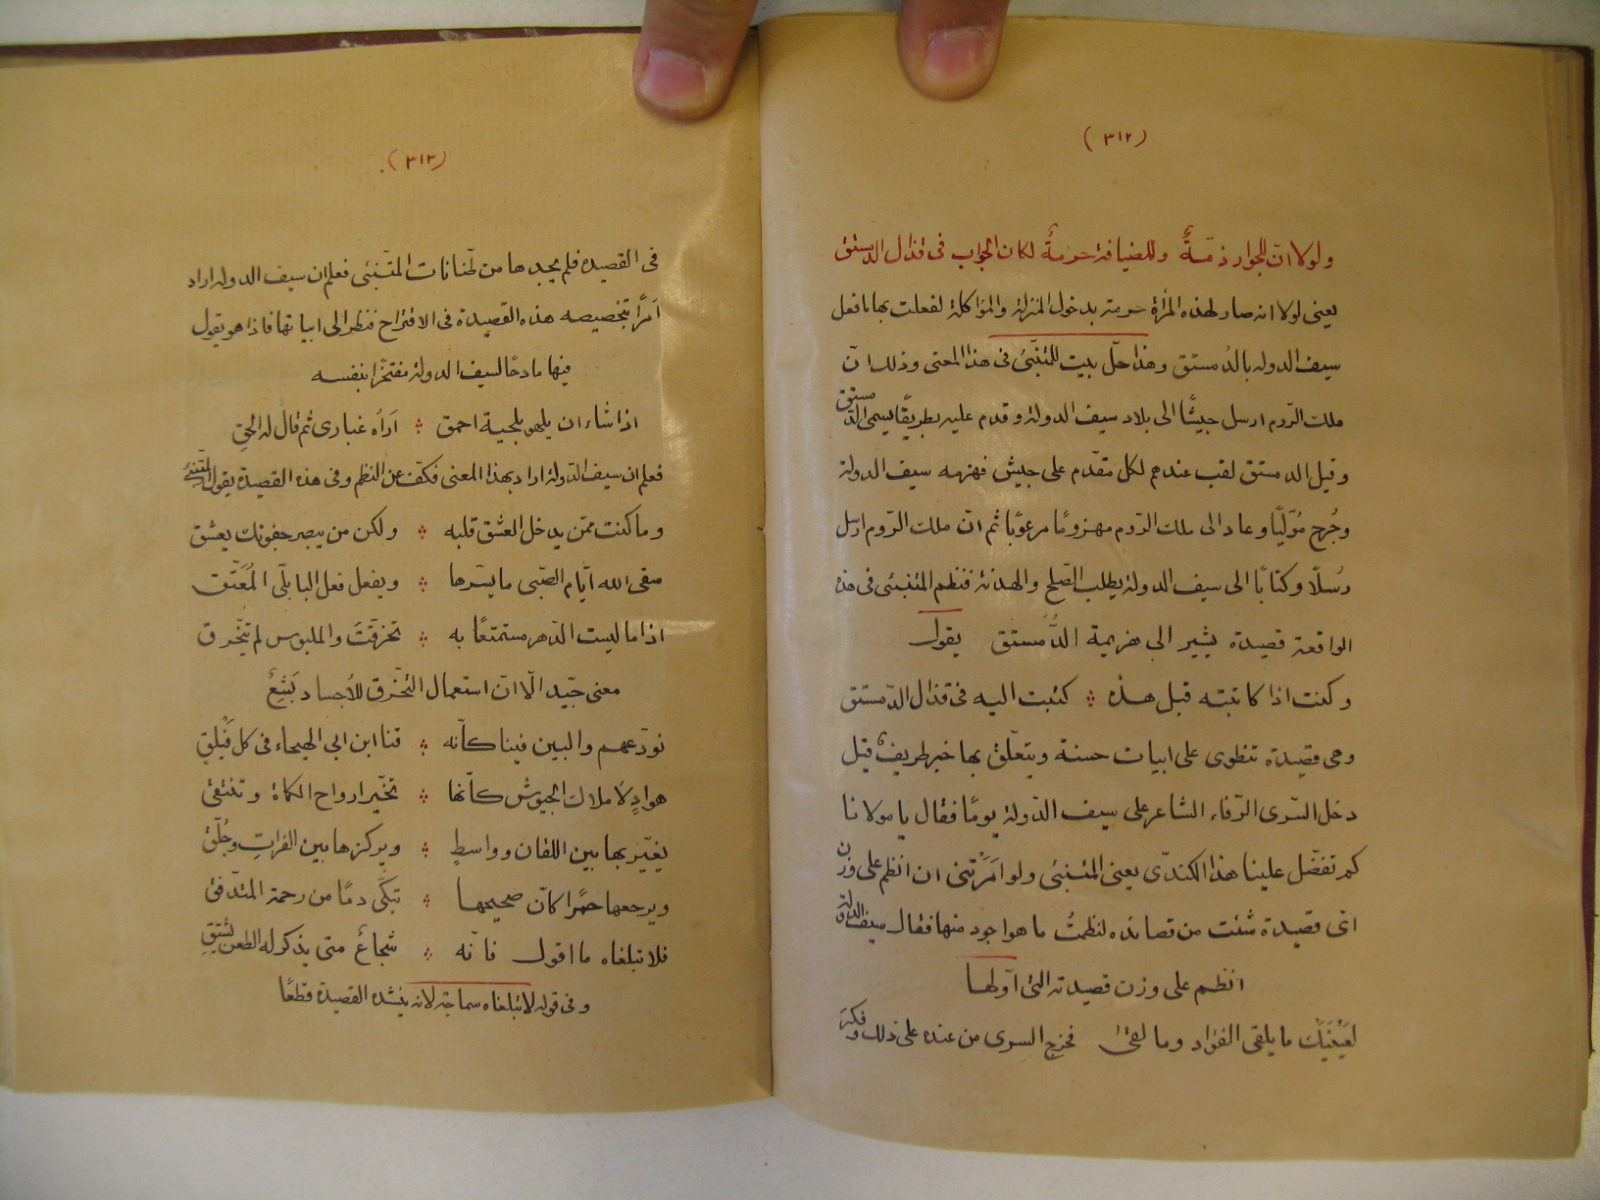 (٣١٢)
ولولا انّ للجوار ذمّةٌ وللضيافة حرمةٌ لكان الجواب فى قذال الدمستق
يعنى لولا انه صار لهذه المرأة حرمة بدخول المنزلة والمواكلة لفعلت بها ما فعل
سيف الدوله بالدُمستق وهذا حلّ بيت للمتنبّئ فى هذا المعنى وذلك انّ
ملك الرّوم ارسل جيشًا الى بلاد سيف الدولة وقدم عليه بطريقًا يسمى الدّمستق
وقيل الدمستق لقب عندهم لكل مقدّم على جيش فهزمه سيف الدولة
وجُرح مُوَلّيًا وعاد الى ملك الرّوم مهزومًا مرعوبًا ثم انّ ملك الرّوم ارسل
رسُلًا وكتابًا الى سيف الدولة يطلب الصّلح والهدنة فنظم المتنبئى فى هذه
الواقعة قصيدة يشير الى هزيمة الدُّمستق يقول
وكنت اذا كاتبته قبل هذه ؞ كتبت اليه فى قذال الدّمستق
وهى قصيدة تنطوى على ابيات حسنة ويتعلّق بها خبر طريفٌ قيل
دخل السّرى الرّفاء الشاعر على سيف الدّولة يومًا فقال يا مولانا
كم تفضّل علينا هذا الكندّى يعنى المتنبئى ولو اَمَرْتنى ان انظم على وزن
اىّ قصيدة شئت من قصائده لنظمتُ ما هو اجود منها فقال سيف الدولة
انظم على وزن قصيدته التى اوّلها
لعَيْنَيْك ما يلقى الفؤاد وما لقى فخرج السرى من عنده على ذلك وفكرَ
(٣١٣)
فى القصيدة فلم يجدها من طنانات المتنبئى فعلم ان سيف الدوله اراد
اَمرًا بتخصيصه هذه القصيدة فى الاقتراح فنظر الى ابياتها فاذا هو يقول
فيها مادحًا لسيف الدولة مفتخرًا بنفسه
اذا شاء ان يلهو بلحية احمق ؞ اَراه غبارى ثم قال له الحقِ
فعلم ان سيف الدّولة اراد بهذا المعنى فكفّ عن النظم وفى هذه القصيدة يقول المتنبّئ
وما كنت ممّن يدخل العشق قلبه ؞ ولكن من يبصر جفونك يعشق
سقى الله ايّام الصّبى ما يسّرها ؞ ويفعل فعل البابلّى المُعَتّق
اذا ما لبست الدّهر مستمتعًا به ؞ تخرّقتَ والملبوس لم تتخّرق
معنى جيّد الّا انّ استعمال التخّرق للأجساد بَشِعٌ
نودّعهم والبين فينا كأنّه ؞ قنا ابن ابى الهيجاء فى كل فيْلق
هوادٍ لاملاك الجيوش كأنّها ؞ تخّير ارواح الكماة وتنتقى
يغيّر بها بين اللقان وواسطٍ ؞ ويركزها بين الفراتِ وجُلّق
ويرجعها حمرًا كانّ صحيحها ؞ تبكّى دمًا من رحمة المتدّفق
فلا تبلغاه ما اقول فانّه ؞ شجاعٌ متى يذكر له الطعن يشتقِ
وفى قوله لا تبلغاه سماجة لانه ينشده القصيدة قطعًا